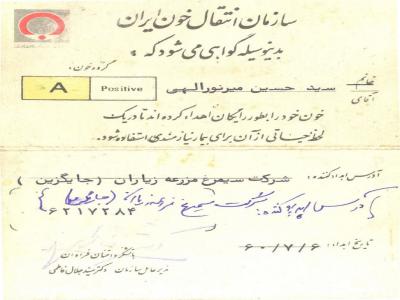 سازمان انتقال خون ایران
بدینوسیله گواهی می شود که
گروه خون:
خانم
آقای
سید حسین میرنورالهی
Positive
A
خون خود را بطور رایگان اهداء کرده اند تا در یک
لحظه حیاتی از آن برای بیمار نیازمندی استفاده شود.
آدرس اهداء کننده: شرکت سیمرغ مزرعه زیاران (جایگزین)
شرکت سیمرغ مزرعه زیاران
۶۲۱۷۲۸۴
تاریخ اهداء: ۶۰/۷/۶
با تشکر و امتنان فراوان
مدیر عامل سازمان دکتر سید جلال فاطمی